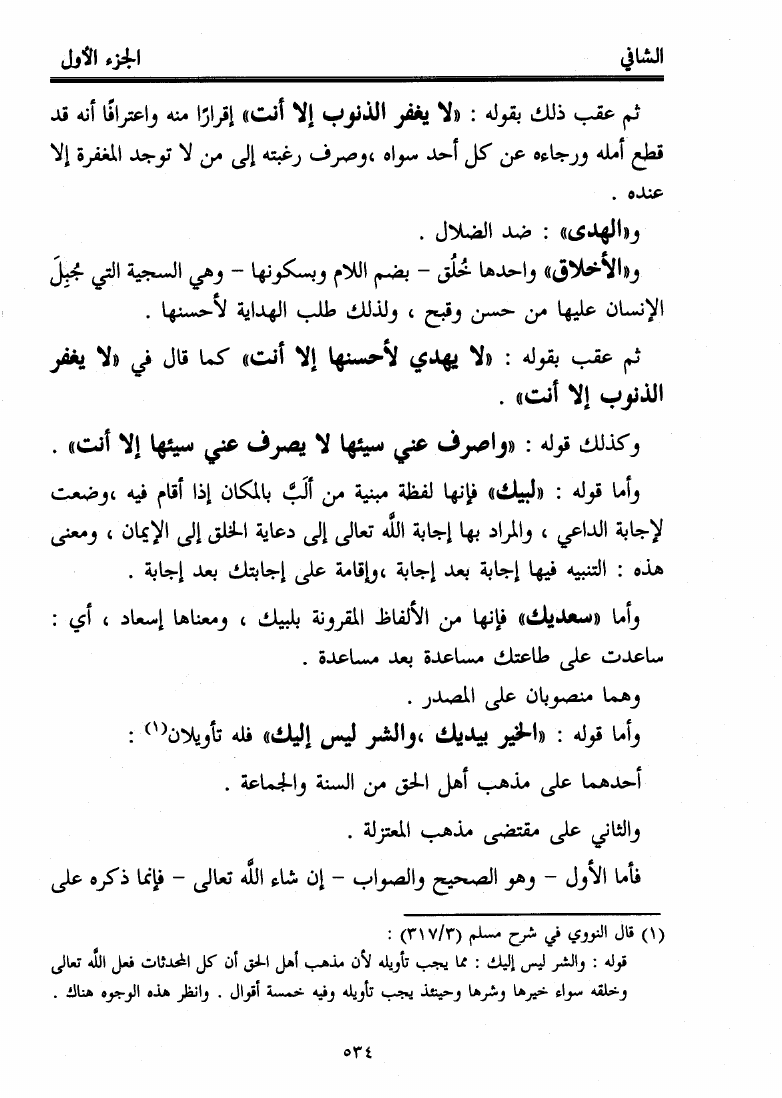 الشافي
الجزء الأول
ثم عقب ذلك بقوله : «لا يغفر الذنوب إلا أنت» إقرارًا منه واعترافًا أنه قد
قطع أمله ورجاءه عن كل أحد سواه ،وصرف رغبته إلى من لا توجد المغفرة إلا
عنده .
و«الهدى» : ضد الضلال .
و«الأخلاق» واحدها خُلُق – بضم اللام وبسكونها – وهي السجية التي جُبِلَ
الإنسان عليها من حسن وقبح ، ولذلك طلب الهداية لأحسنها .
ثم عقب بقوله : «لا يهدي لأحسنها إلا أنت» كما قال في «لا يغفر
الذنوب إلا أنت» .
وكذلك قوله : «واصرف عني سيئها لا يصرف عني سيئها إلا أنت» .
وأما قوله : «لبيك» فإنها لفظة مبنية من أَلَبَّ بالمكان إذا أقام فيه ،وضعت
لإجابة الداعي ، والمراد بها إجابة اللَّه تعالى إلى دعاية الخلق إلى الإيمان ، ومعنى
هذه : التنبيه فيها إجابة بعد إجابة ،وإقامة على إجابتك بعد إجابة .
وأما «سعديك» فإنها من الألفاظ المقرونة بلبيك ، ومعناها إسعاد ، أي :
ساعدت على طاعتك مساعدة بعد مساعدة .
وهما منصوبان على المصدر .
وأما قوله : «الخير بيديك ،والشر ليس إليك» فله تأويلان(١) :
أحدهما على مذهب أهل الحق من السنة والجماعة .
والثاني على مقتضى مذهب المعتزلة .
فأما الأول – وهو الصحيح والصواب – إن شاء اللَّه تعالى – فإنما ذكره على
(١) قال النووي في شرح مسلم (٣/ ٣١٧) :
قوله : والشر ليس إليك : مما يجب تأويله لأن مذهب أهل الحق أن كل المحدثات فعل اللَّه تعالى
وخلقه سواء خيرها وشرها وحينئذ يجب تأويله وفيه خمسة أقوال . وانظر هذه الوجوه هناك .
٥٣٤